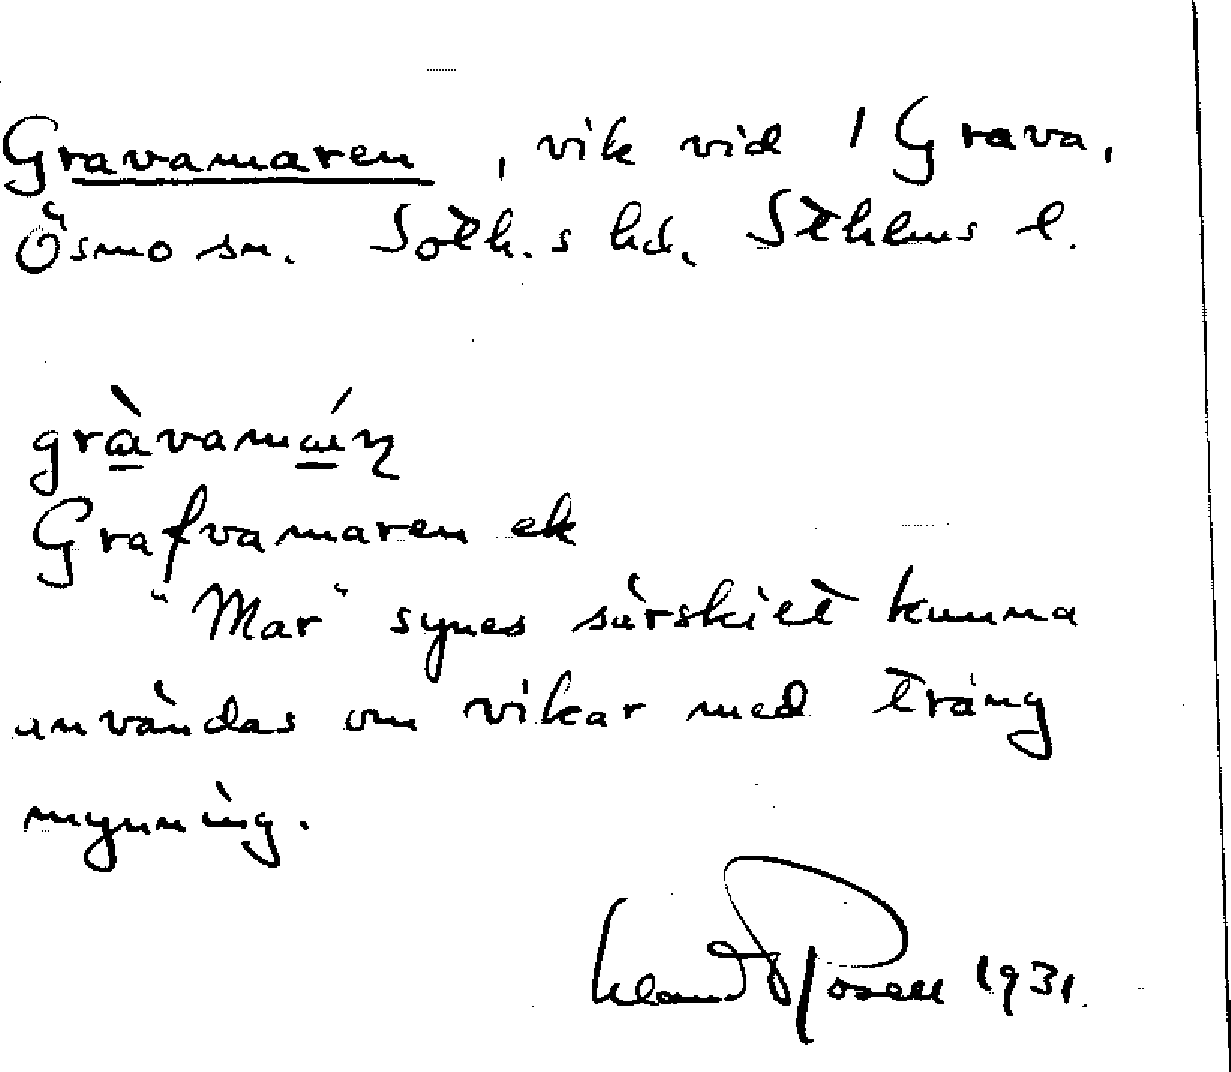 Gravamaren, vik vid 1 Grava,
Ösmo sn. Soth.s hd. Sthlms l.
gràvamáɳ
Grafvamaren ek
"Mar" synes särskilt kunna
användas om vikar med trång
mynning.
Rosell 1931.